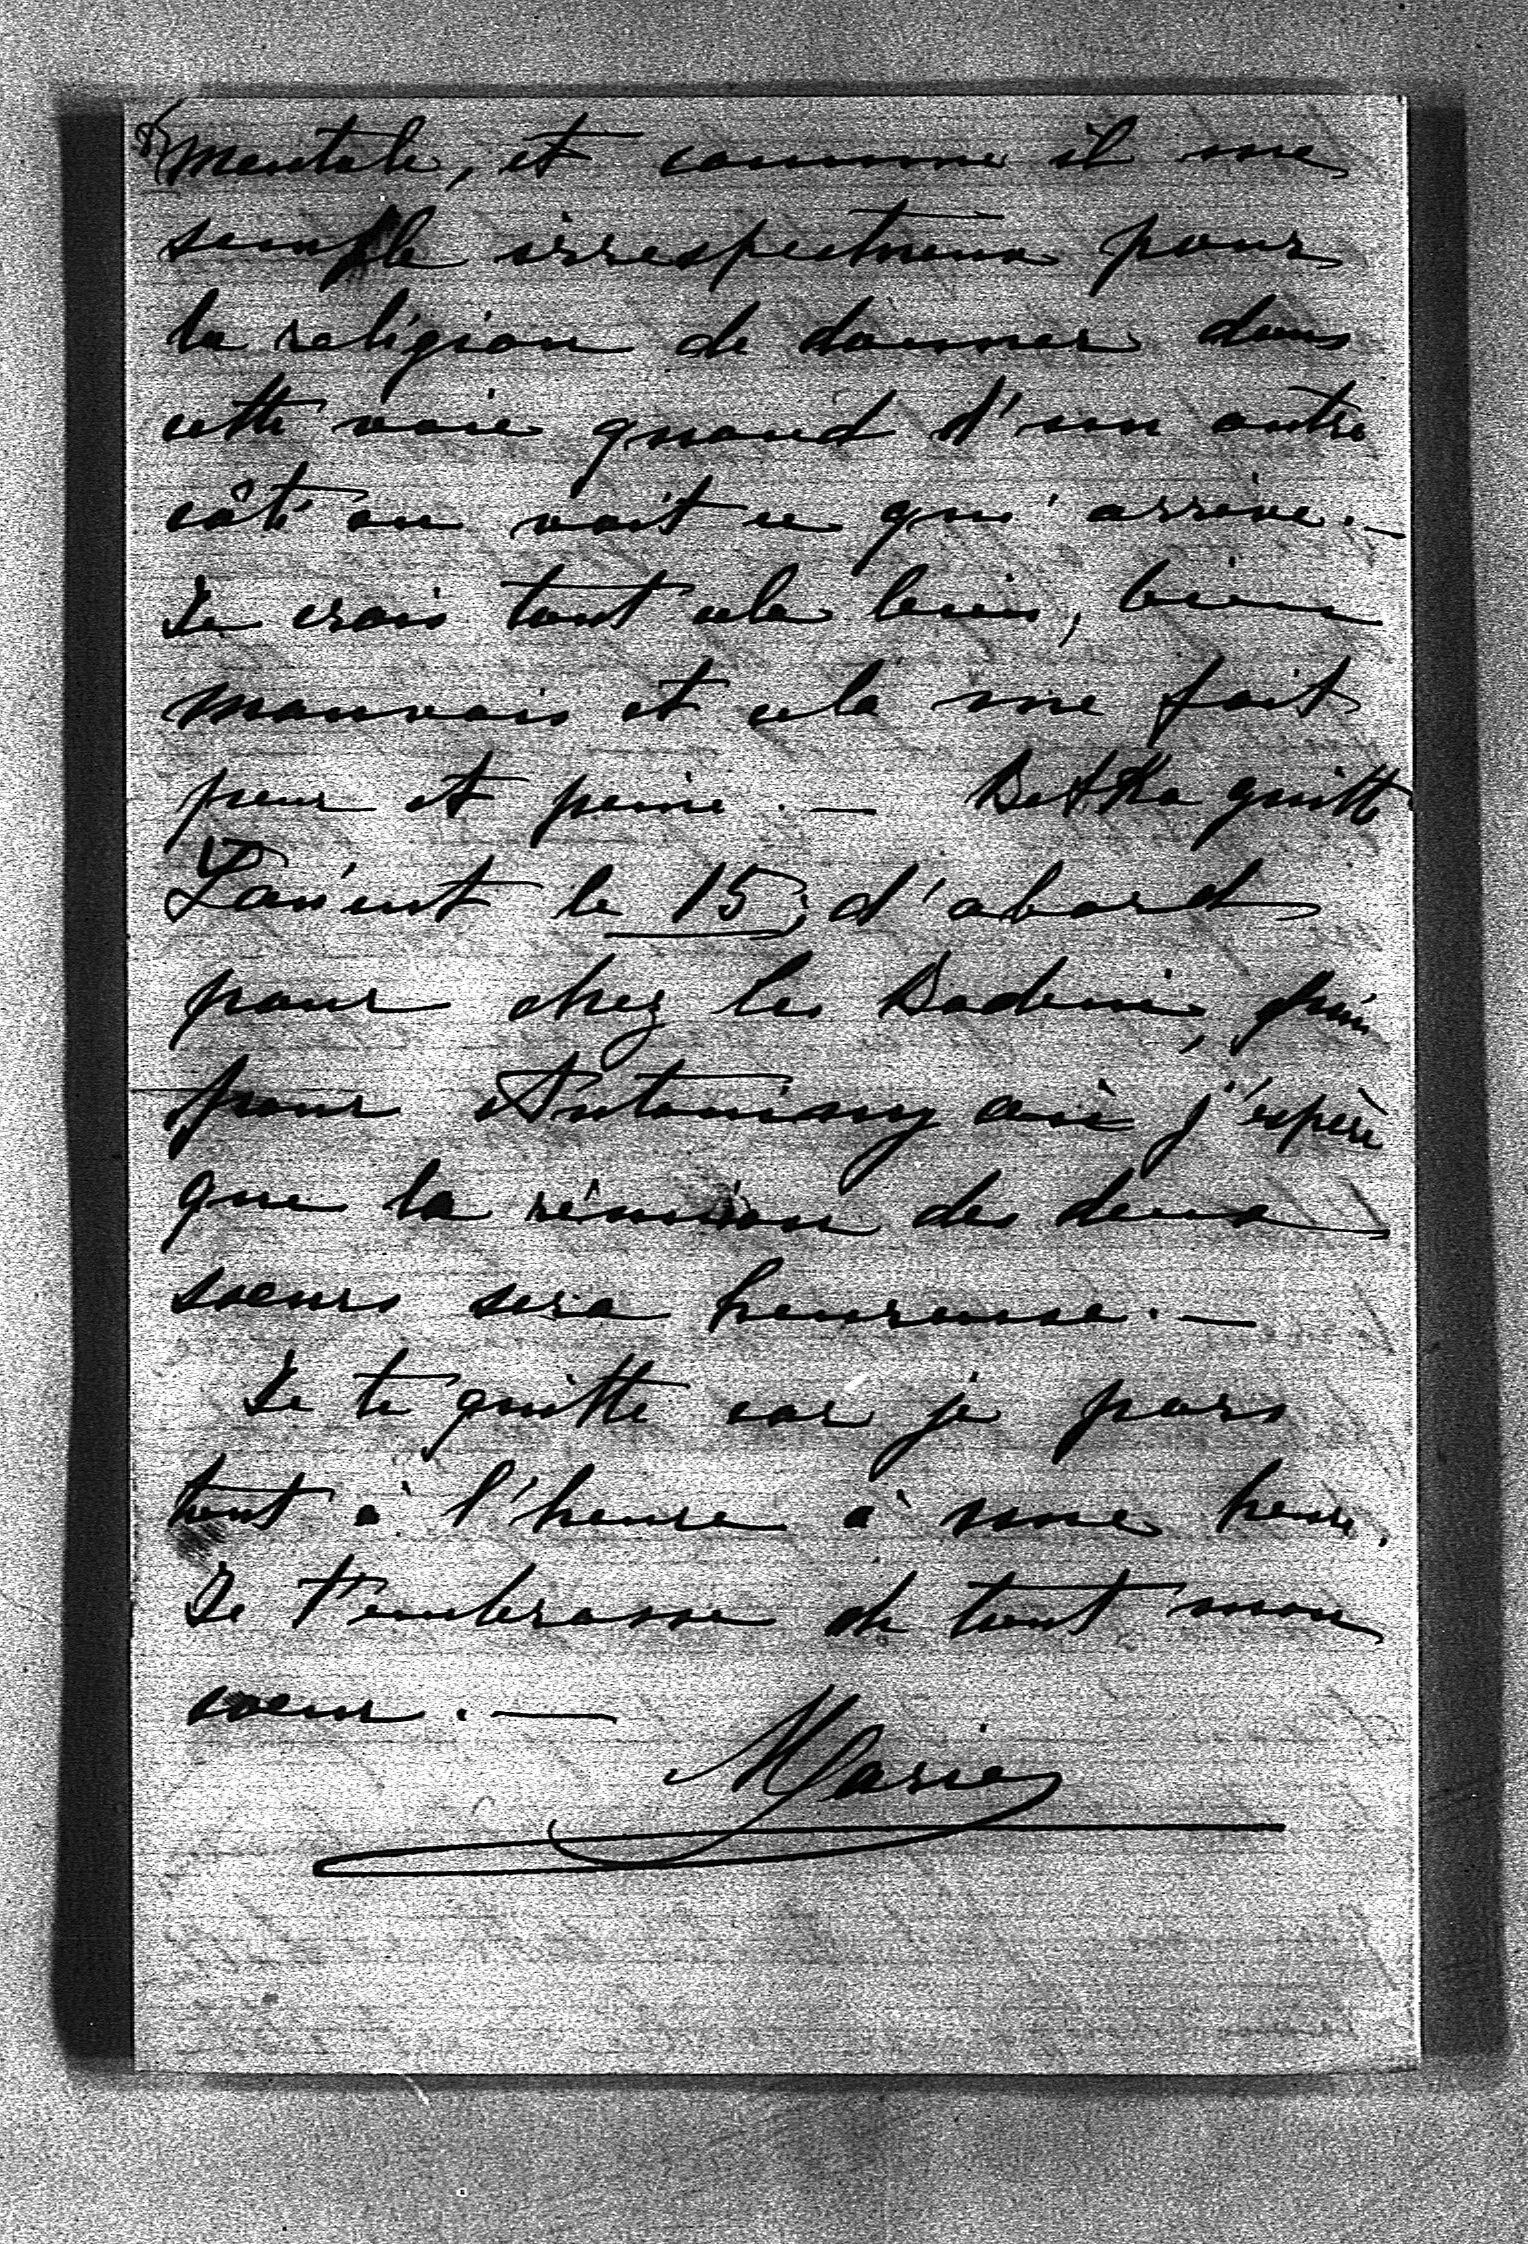 8) mentale, et comme il me
semble irrespectueux pour
la religion de donner dans
cette voie quand d'un autre
côté on voit ce qui arrive. —
Je crois tout cela bien, bien
mauvais et cela me fait
peur et peine. — Betka quitte
Łańcut le 15, d'abord
pour chez les Badeni, puis
pour Antoniny où j'espère
que la réunion des deux
soeurs sera heureuse. —
Je te quitte car je pars
tout à l'heure à une heure.
Je t'embrasse de tout mon
coeur. —
Marie